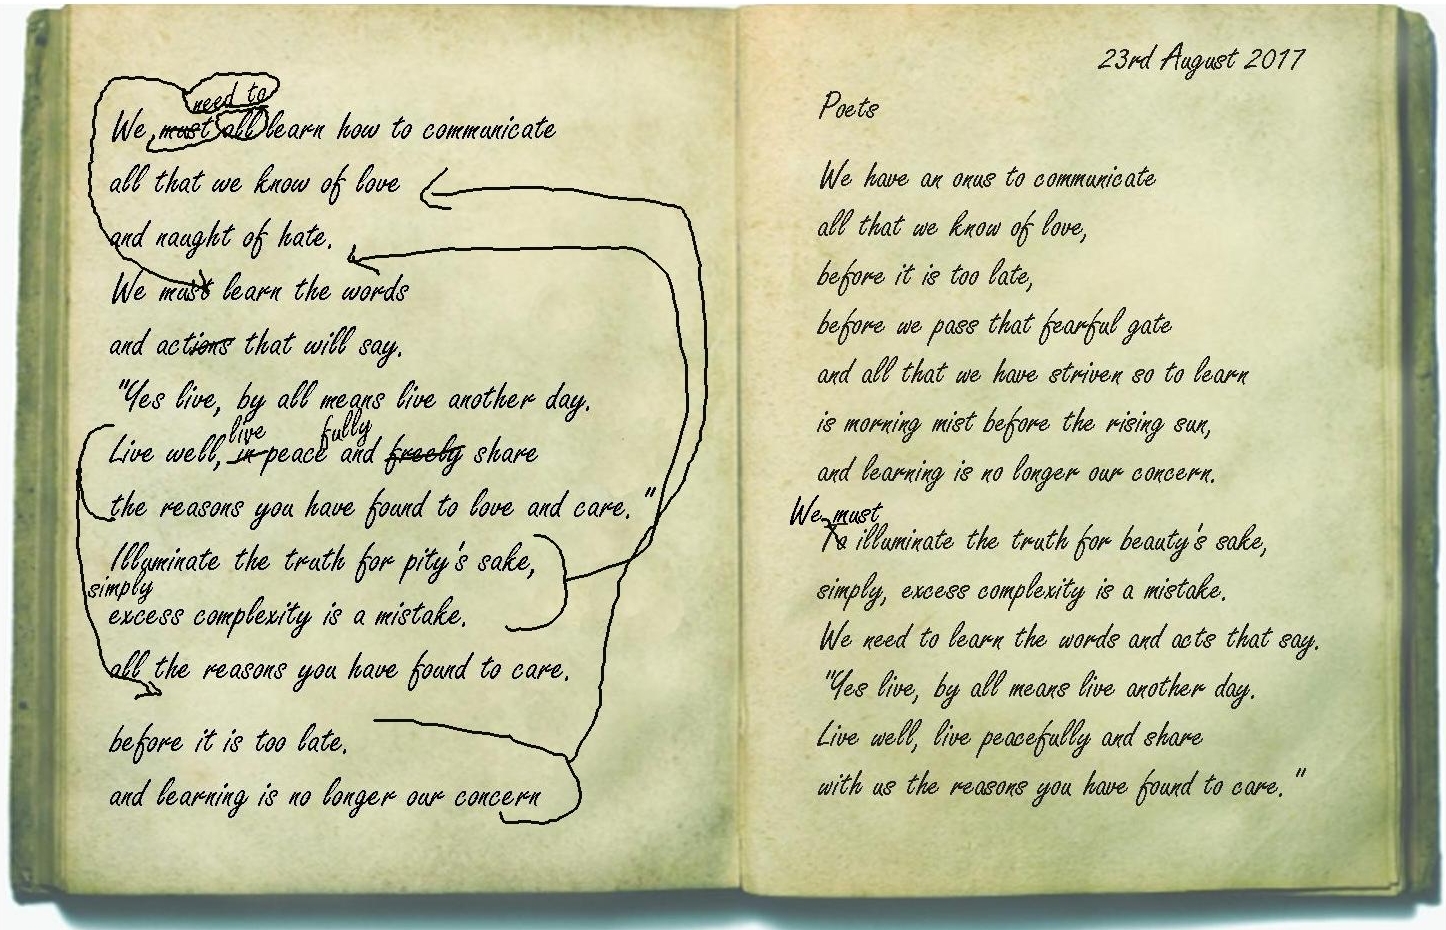 need to
We must all learn how to communicate
all that we know of love
and naught of hate.
We must learn the words
and actions that will say.
"Yes live, by all means live another day.
live fully
Live well, in peace and freely share
the reasons you have found to love and care."
Illuminate the truth for pity's sake,
simply
excess complexity is a mistake.
all the reasons you have found to care.
before it is too late.
and learning is no longer our concern
23rd August 2017
Poets
We have an onus to communicate
all that we know of love,
before it is too late,
before we pass that fearful gate
and all that we have striven so to learn
is morning mist before the rising sun,
and learning is no longer our concern.
We must
To illuminate the truth for beauty's sake,
simply, excess complexity is a mistake.
We need to learn the words and acts that say.
"Yes live, by all means live another day.
Live well, live peacefully and share
with us the reasons you have found to care."